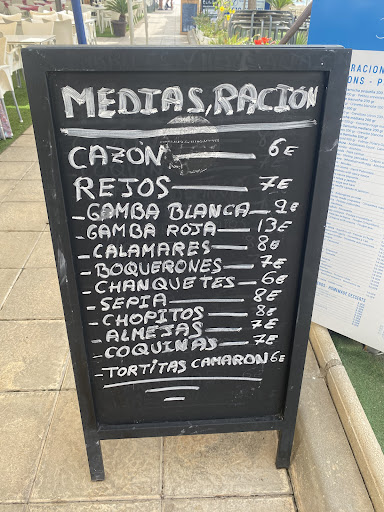 MEDIAS, RACIÓN
CAZÓN 6€
REJOS 7€
- GAMBA BLANCA 9€
- GAMBA ROJA 13€
- CALAMARES 8€
- BOQUERONES 7€
- CHANQUETES 6€
- SEPIA 8€
- CHOPITOS 8€
- ALMEJAS 7€
- COQUINAS 7€
- TORTITAS CAMARON 6€
RACION